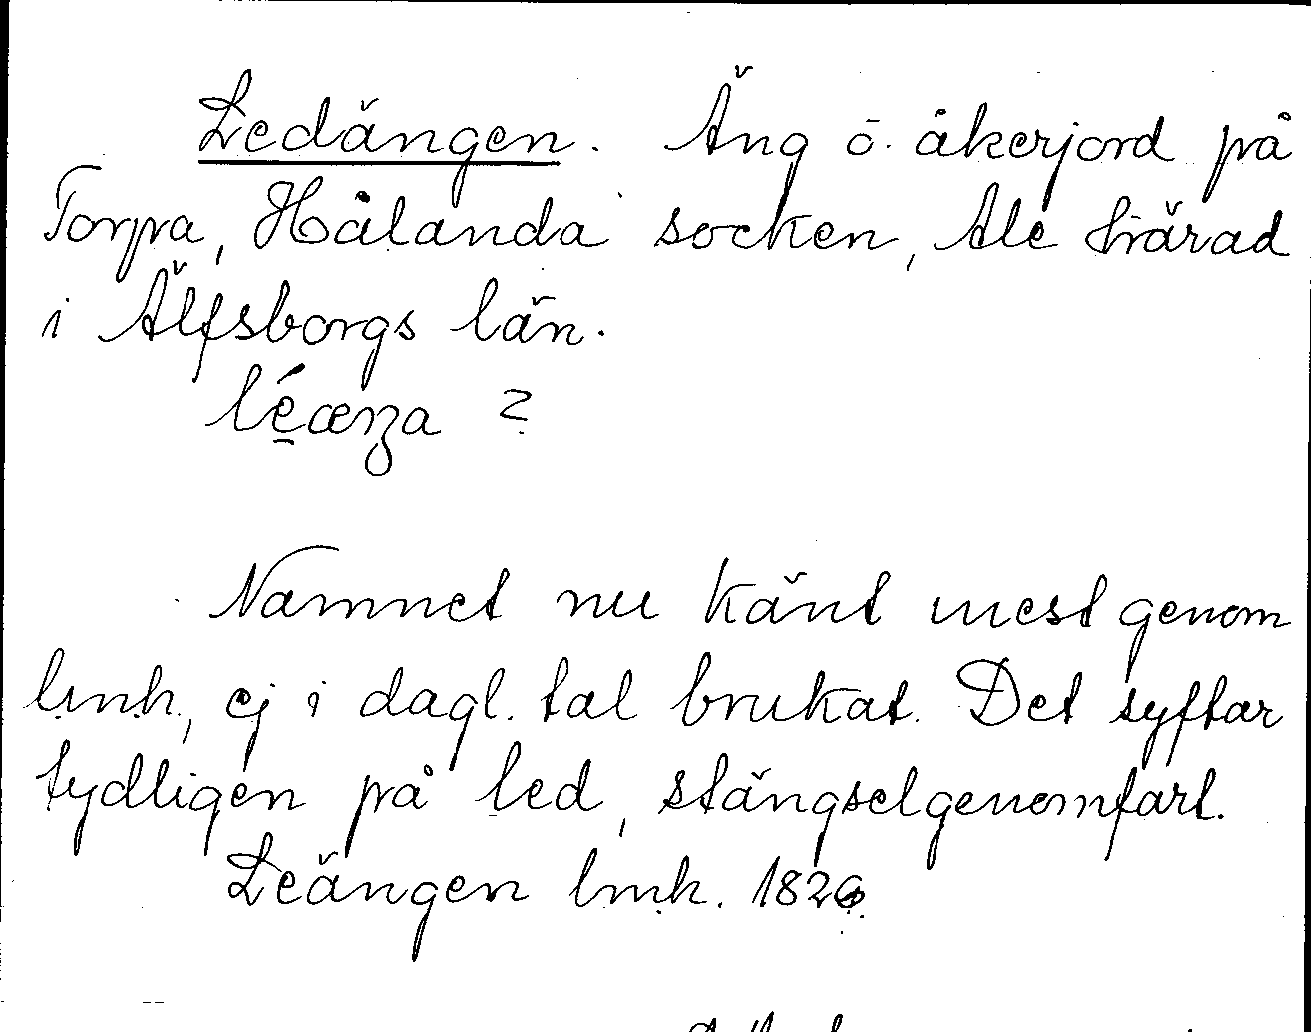 Ledängen. Äng o. åkerjord på
Torpa, Hålanda socken, Ale härad
i Älfsborgs län.
léæŋa ?
Namnet nu känt mest genom
lmh, ej i dagl. tal brukat. Det syftar
tydligen på led, stängselgenomfart.
Leängen lmh. 1826.